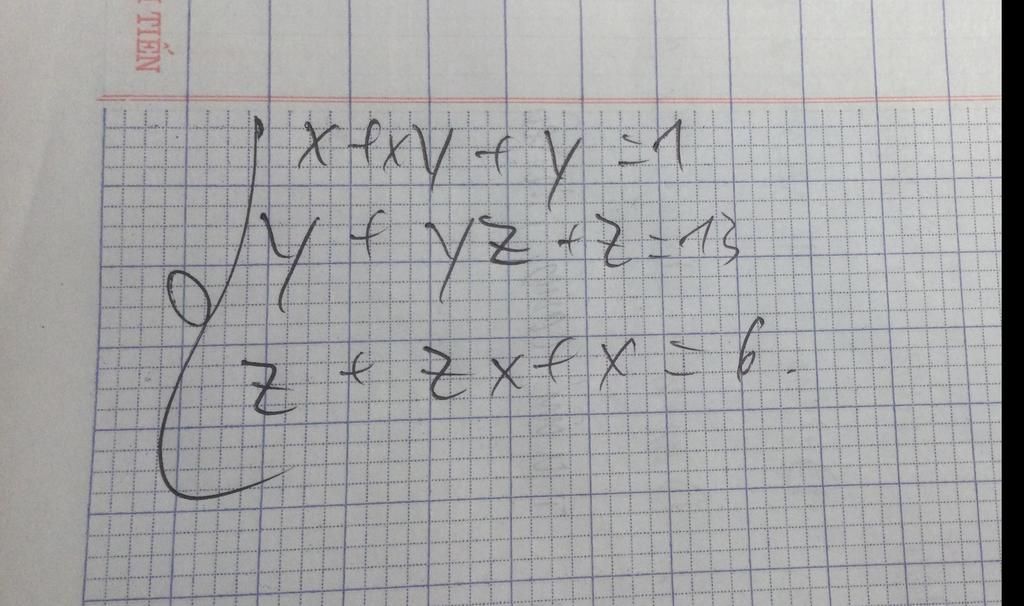 TIẾN
x + xy + y = 1
y + yz + z = 13
z + zx + x = 6.